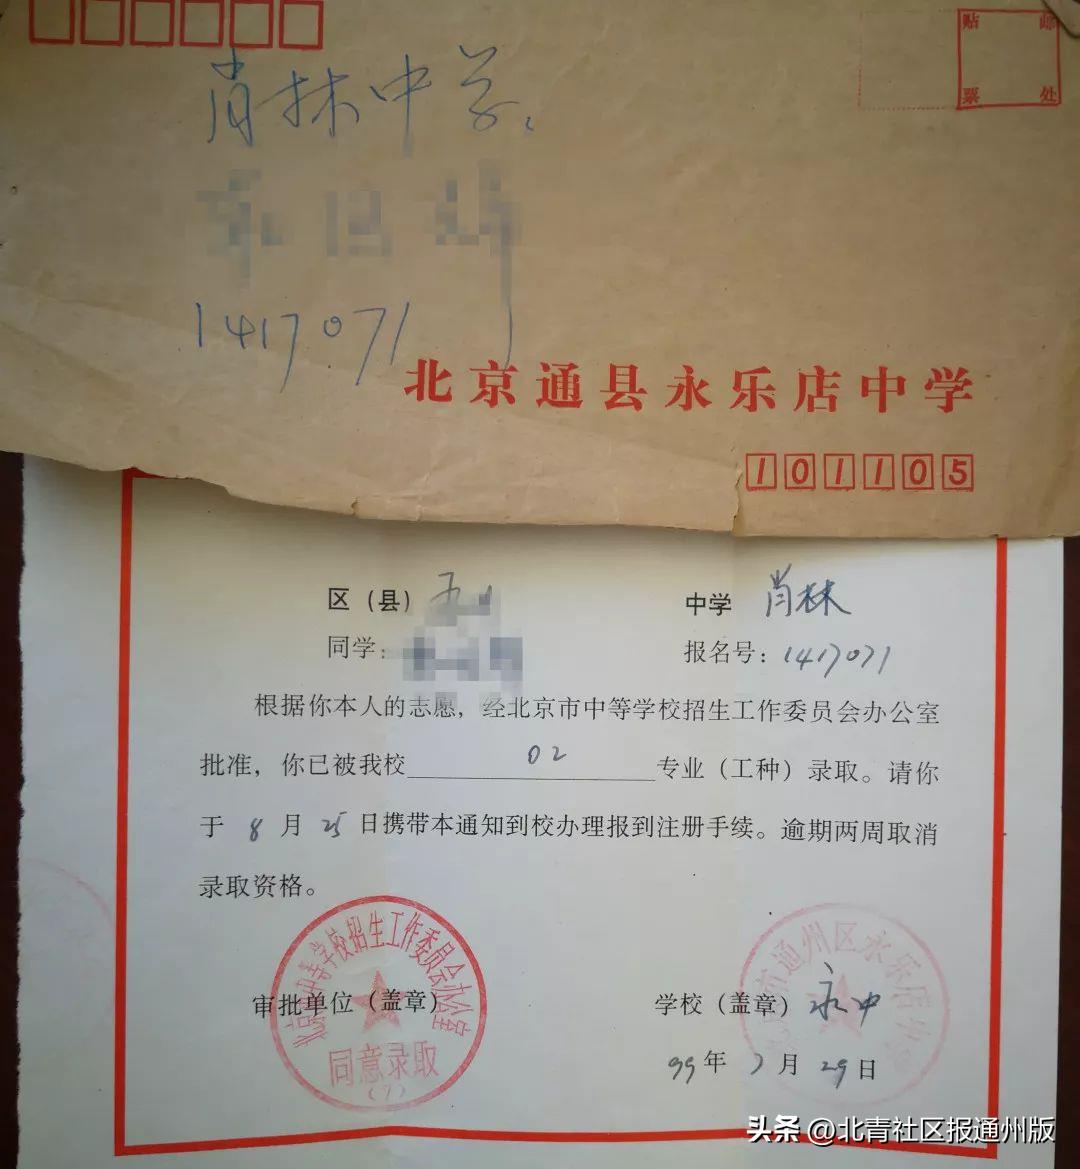 贴 邮
票 处
肖林中学
1417071
北京通县永乐店中学
101105
区（县） 中学 肖林
同学： 报名号：1417071
根据你本人的志愿，经北京市中等学校招生工作委员会办公室
批准，你已被我校02专业（工种）录取。请你
于8月25日携带本通知到校办理报到注册手续。逾期两周取消
录取资格。
北京市中等学校招生工作委员会办公室
同意录取
(7)
审批单位（盖章）
市通州区永乐店中学
学校（盖章）永中
99年7月29日
头条 @北青社区报通州版